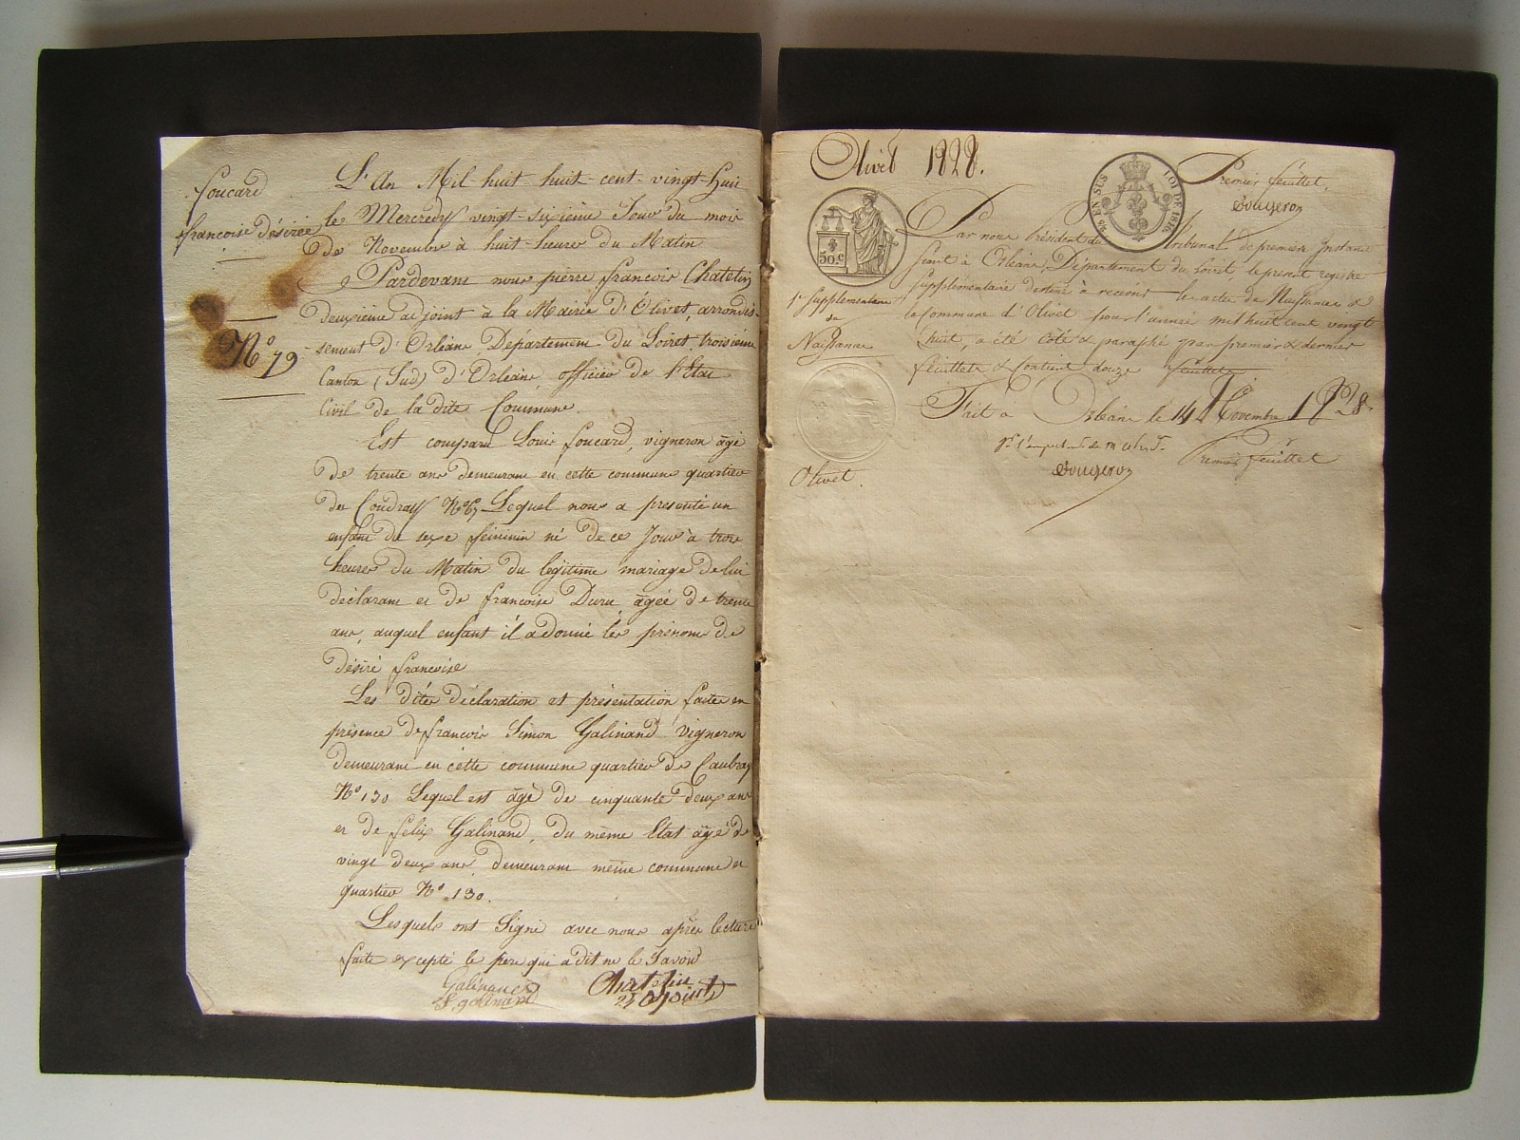 foucard
françoise désirée
N.° 79
L'An Mil huit huit-cent-vingt-huit
le Mercredy vingt-sixième Jour du mois
de Novembre à huit-heures du Matin
Pardevant nous pierre françois Chatelin
deuxième adjoint à la Mairie d'Olivet, arrondis-
sement d'Orléans Département du Loiret troisième
Canton (Sud) d'Orléans, officier de l'Etat
Civil de la dite Commune.
Est comparu Louis foucard, vigneron âgé
de trente ans demeurant en cette commune quartier
du Coudray N° Lequel nous a presenté un
enfant du sexe féminin né de ce Jour à trois
heures du Matin du légitime mariage de lui
déclarant et de francoise Duru, âgée de trente
ans, auquel enfant il a donné les prénoms de
désiré francoise
Les dites déclaration et présentation faites en
présence de francois Simon Galinand vigneron
demeurant en cette commune quartier de Caubray
N° 130 Lequel est âgé de cinquante deux ans
et de felix Galinand, du même Etat âgé de
vingt deux ans, demeurant même commune et
quartier N° 130.
Lesquels ont Signé avec nous après lecture
faite excepté le pere qui a dit ne le Savoir
Galinand
F. galinand
Chatelin
2e Adjoint
Olivet 1828.
EN SUS
LOI DE 1816
Premier feuillet.
50.c
1er Supplémentaire
de
Naissances
Olivet.
Par nous Président du Tribunal de première Instance
séant à Orléans, Département du Loiret, le present registre
supplémentaire destiné à recevoir les actes de Naissances de
la commune d'Olivet pour l'année mil huit cent vingt
huit, a été coté & paraphé par premier & dernier
feuillets & contient douze feuillets
Fait à Orléans le 14 Novembre 1828.
Premier feuillet